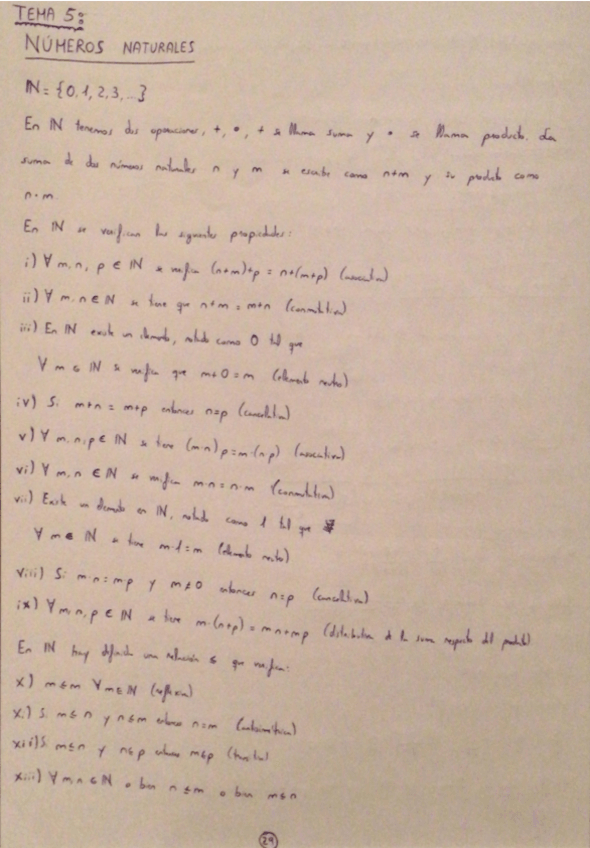 TEMA 5:
NÚMEROS NATURALES
ℕ = {0, 1, 2, 3, ...}
En ℕ tenemos dos operaciones, +, •, + se llama suma y • se llama producto. La
suma de dos números naturales n y m se escribe como n+m y su producto como
n·m
En ℕ se verifican las siguientes propiedades:
i) ∀ m, n, p ∈ ℕ se verifica (n+m)+p = n+(m+p) (asociativa)
ii) ∀ m, n ∈ ℕ se tiene que n+m = m+n (conmutativa)
iii) En ℕ existe un elemento, notado como 0 tal que
∀ m ∈ ℕ se verifica que m+0 = m (elemento neutro)
iv) Si m+n = m+p entonces n=p (cancelativa)
v) ∀ m, n, p ∈ ℕ se tiene (m·n)·p = m·(n·p) (asociativa)
vi) ∀ m, n ∈ ℕ se verifica m·n = n·m (conmutativa)
vii) Existe un elemento en ℕ, notado como 1 tal que
∀ m ∈ ℕ se tiene m·1 = m (elemento neutro)
viii) Si m·n = m·p y m≠0 entonces n=p (cancelativa)
ix) ∀ m, n, p ∈ ℕ se tiene m·(n+p) = m·n+m·p (distributiva de la suma respecto del producto)
En ℕ hay definida una relación ≤ que verifica:
x) m≤m ∀ m ∈ ℕ (reflexiva)
xi) Si m≤n y n≤m entonces n=m (antisimétrica)
xii) Si m≤n y n≤p entonces m≤p (transitiva)
xiii) ∀ m, n ∈ ℕ o bien n≤m o bien m≤n
29